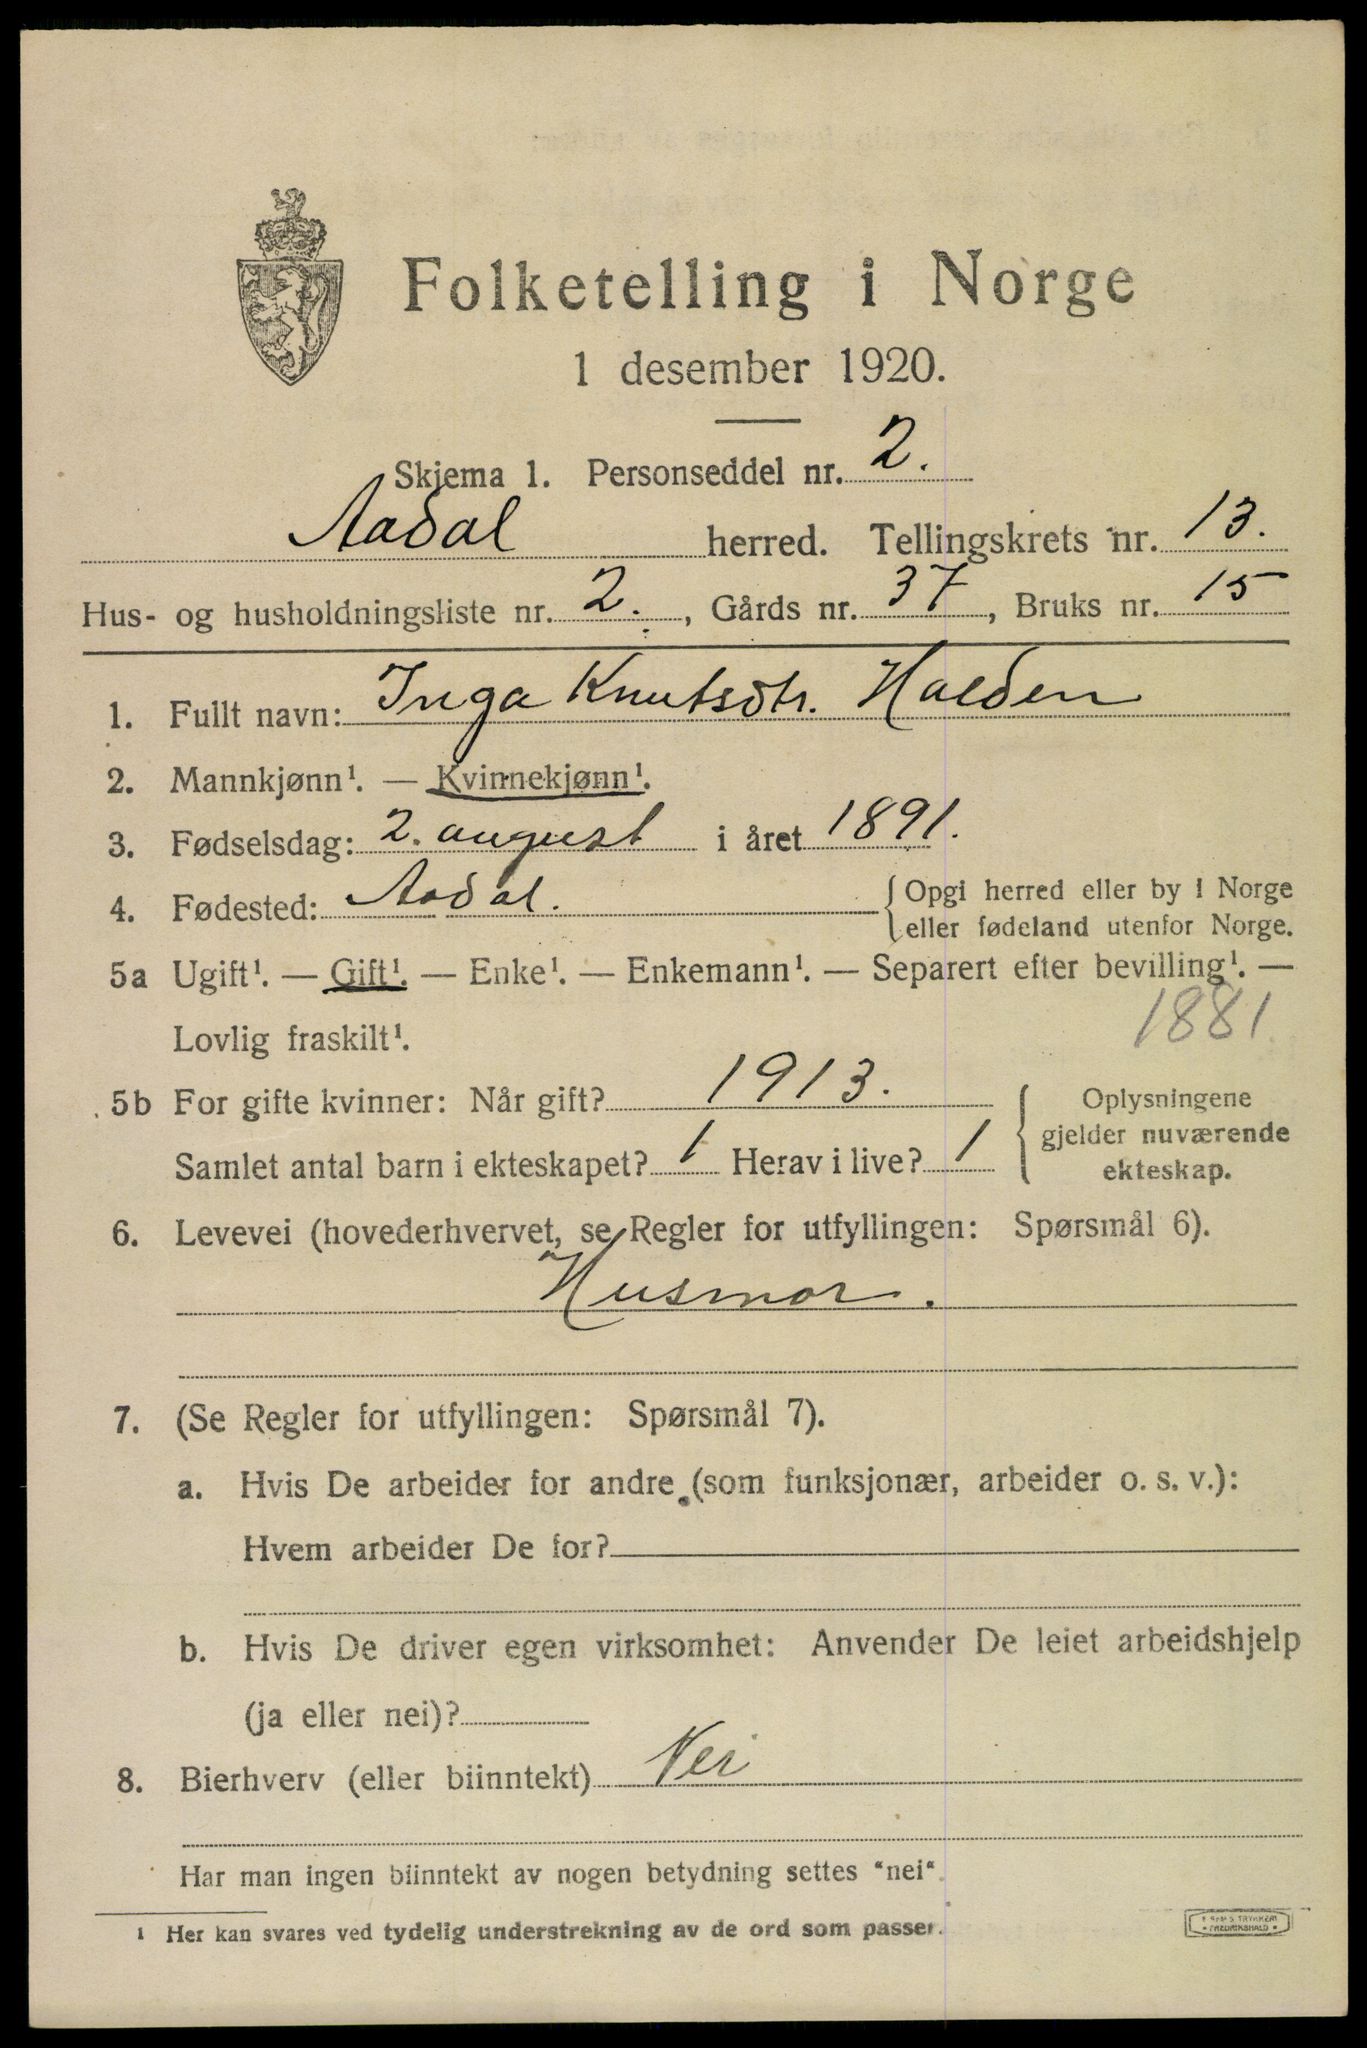 Folketelling i Norge
1 desember 1920.
Skjema 1. Personseddel nr. 2.
Aadal herred. Tellingskrets nr. 13.
Hus- og husholdningsliste nr. 2., Gårds nr. 37, Bruks nr. 15
1. Fullt navn: Inga Knutsdtr. Halden
2. Mannkjønn¹. — Kvinnekjønn¹.
3. Fødselsdag: 2. august i året 1891.
4. Fødested: Aadal. {Opgi herred eller by i Norge
eller fødeland utenfor Norge.
5a Ugift¹. — Gift¹. — Enke¹. — Enkemann¹. — Separert efter bevilling¹. —
Lovlig fraskilt¹. 1881
5b For gifte kvinner: Når gift? 1913. { Oplysningene
gjelder nuværende
ekteskap.
Samlet antal barn i ekteskapet? 1 Herav i live? 1
6. Levevei (hovederhvervet, se Regler for utfyllingen: Spørsmål 6).
Husmor.
7. (Se Regler for utfyllingen: Spørsmål 7).
a. Hvis De arbeider for andre (som funksjonær, arbeider o. s. v.):
Hvem arbeider De for?
b. Hvis De driver egen virksomhet: Anvender De leiet arbeidshjelp
(ja eller nei)?
8. Bierhverv (eller biinntekt) Nei
Har man ingen biinntekt av nogen betydning settes "nei".
¹ Her kan svares ved tydelig understrekning av de ord som passer.
TRYKKERI
FREDRIKSHALD